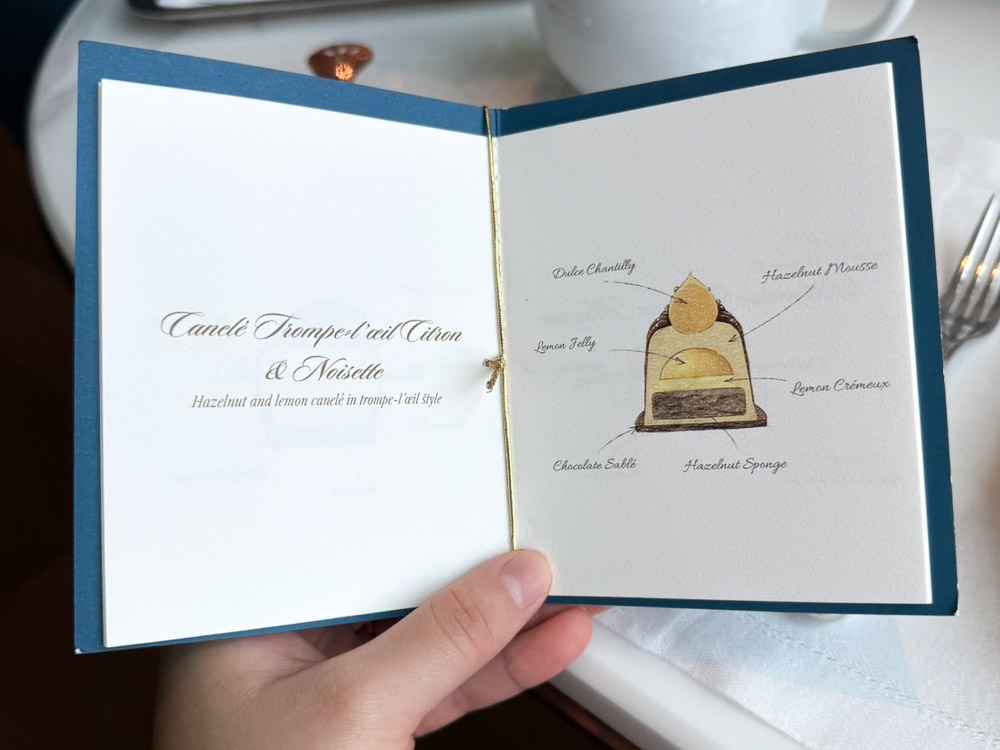 Canelé Trompe-l'œil Citron
& Noisette
Hazelnut and lemon canelé in trompe-l'œil style
Dulce Chantilly
Hazelnut Mousse
Lemon Jelly
Lemon Crémeux
Chocolate Sablé
Hazelnut Sponge